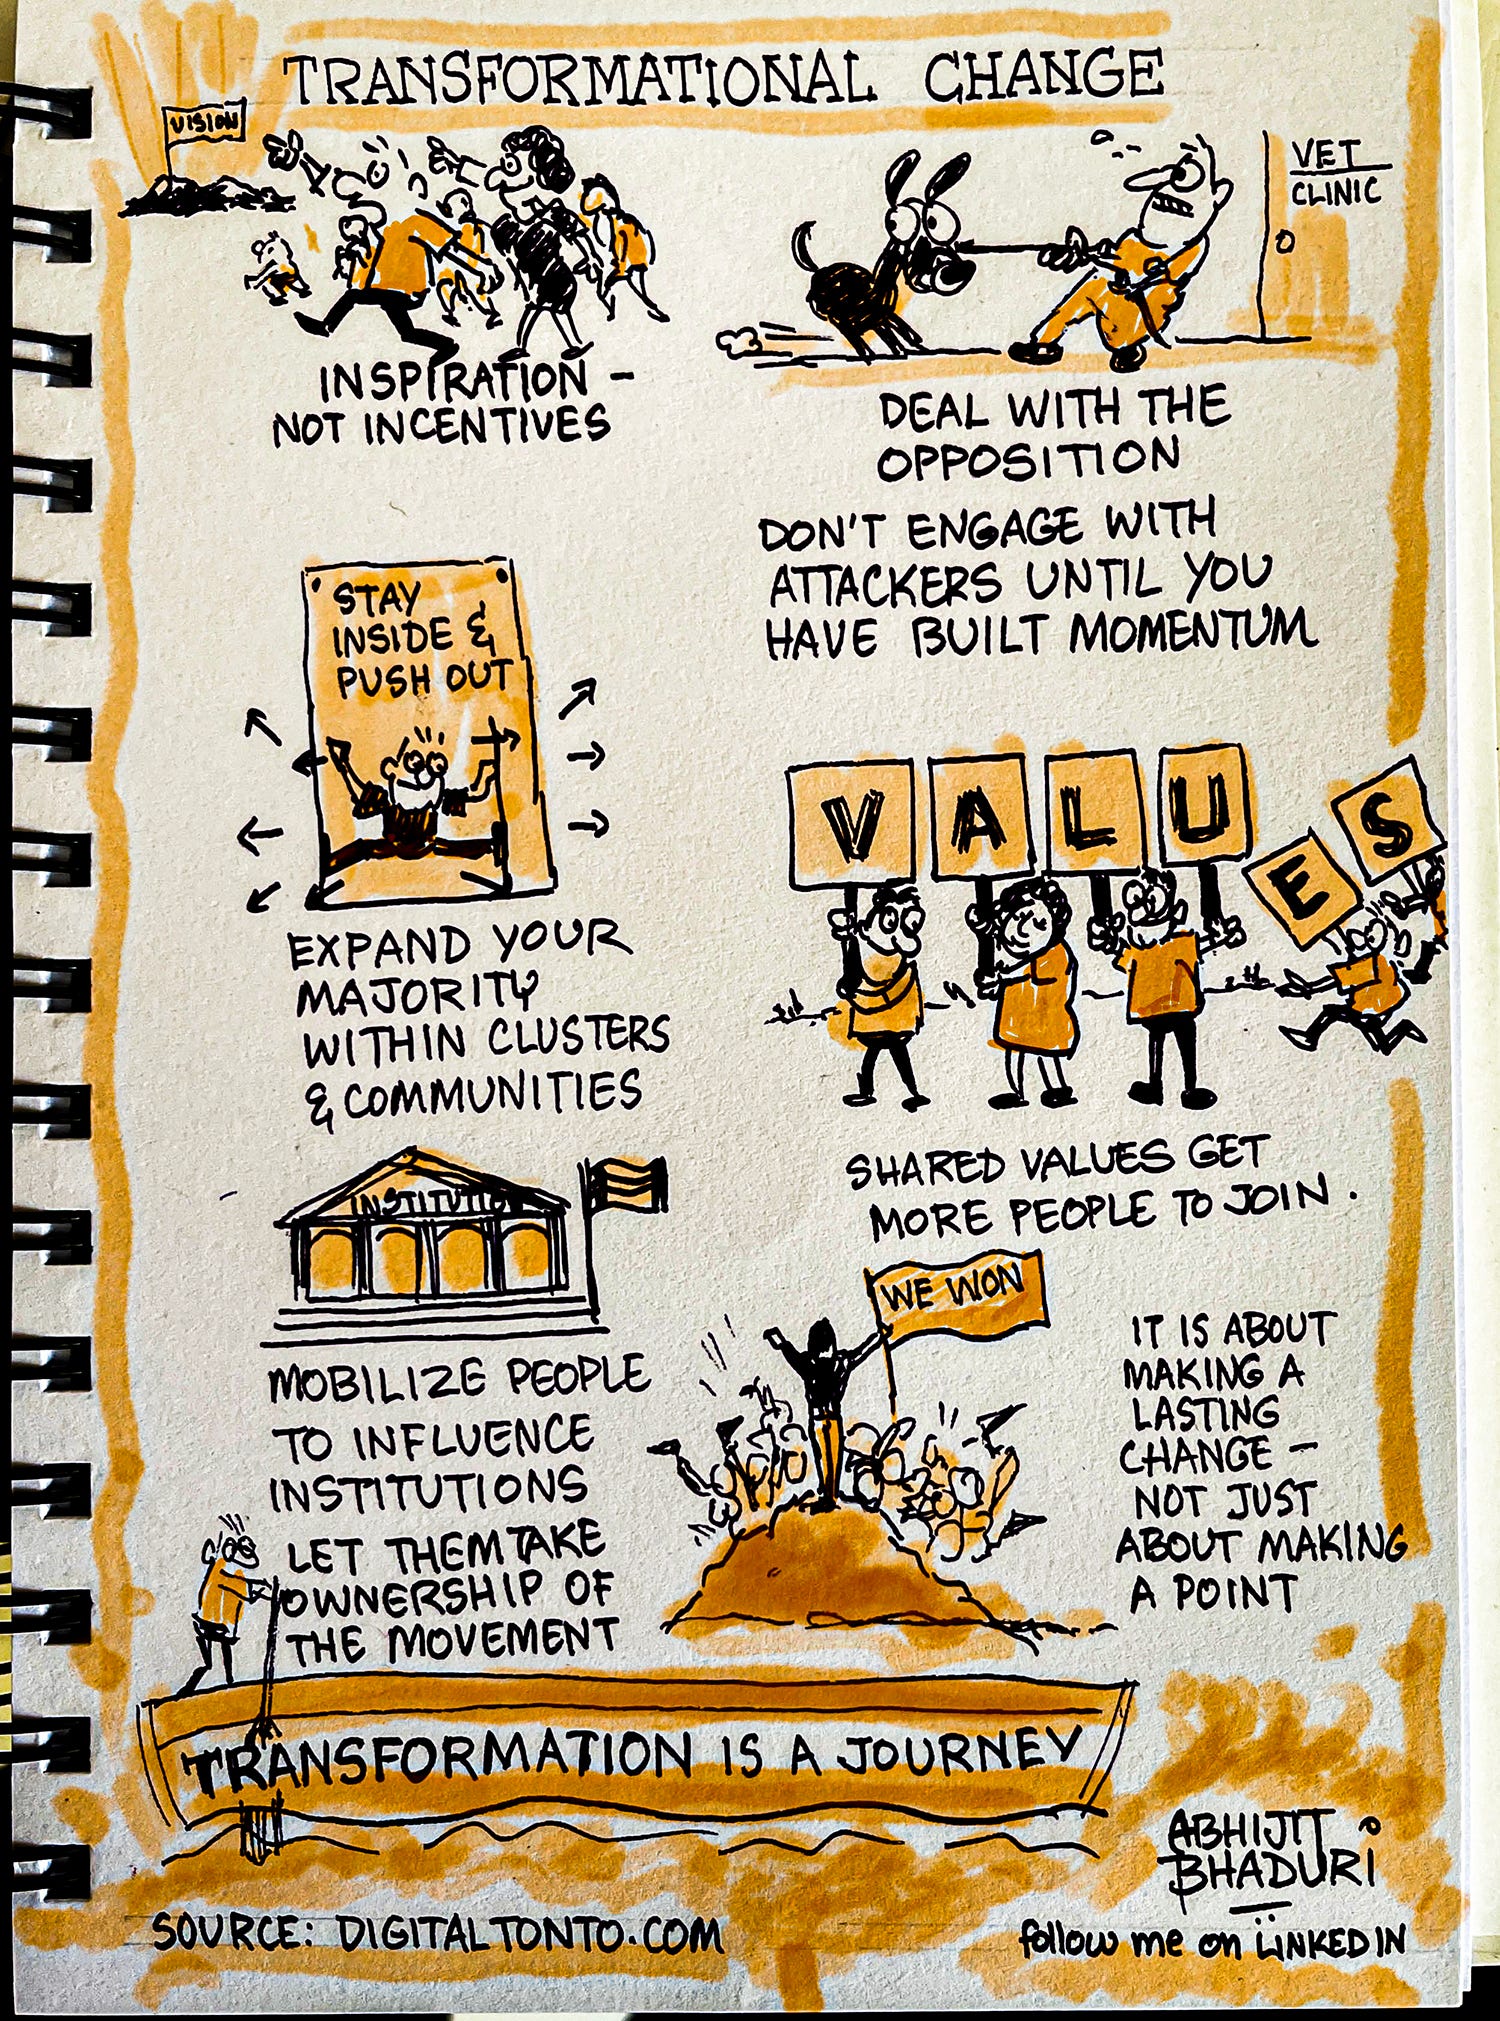 TRANSFORMATIONAL CHANGE
VISION
INSPIRATION -
NOT INCENTIVES
VET
CLINIC
DEAL WITH THE
OPPOSITION
DON'T ENGAGE WITH
ATTACKERS UNTIL YOU
HAVE BUILT MOMENTUM
STAY
INSIDE &
PUSH OUT
EXPAND YOUR
MAJORITY
WITHIN CLUSTERS
& COMMUNITIES
VALUES
SHARED VALUES GET
MORE PEOPLE TO JOIN.
INSTITUTION
MOBILIZE PEOPLE
TO INFLUENCE
INSTITUTIONS
LET THEM TAKE
OWNERSHIP OF
THE MOVEMENT
WE WON
IT IS ABOUT
MAKING A
LASTING
CHANGE -
NOT JUST
ABOUT MAKING
A POINT
TRANSFORMATION IS A JOURNEY
ABHIJIT
BHADURI
SOURCE: DIGITALTONTO.COM
follow me on LINKEDIN